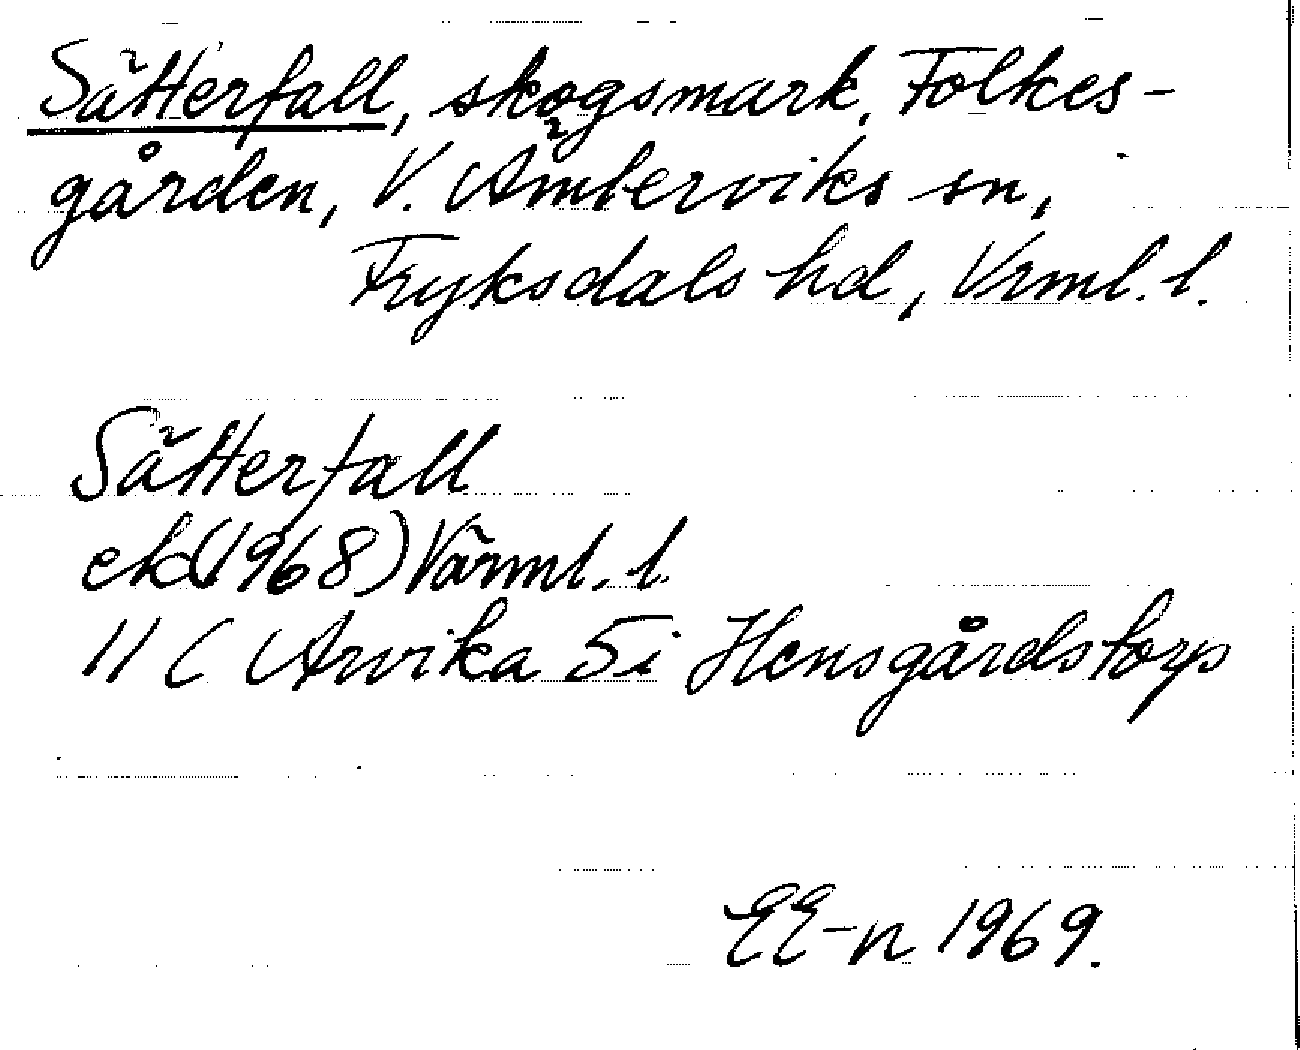 Sätterfall, skogsmark, Folkes-
gården, V. Ämterviks sn,
Fryksdals hd, Vrml. l.
Sätterfall
ek (1968) Värml. l.
11 C Arvika 5i Hensgårdstorp
EE-n 1969.